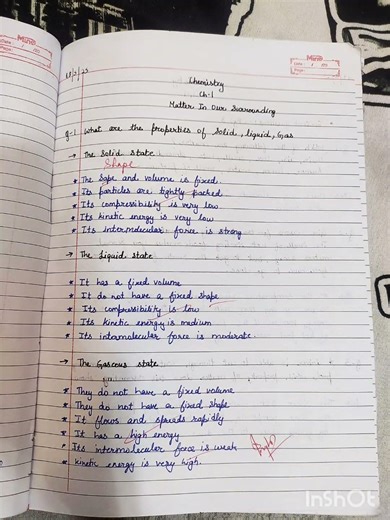 Chemistry
Ch-1
Matter In Our Surrounding
Q-1 What are the properties of Solid, liquid, Gas
→ The Solid State
Shape
* The Sape and volume is fixed.
* Its particles are tightly packed
* Its compressibility is very low
* Its kinetic energy is very low
* Its intermolecular force is strong
→ The liquid state
* It has a fixed volume
* It do not have a fixed shape
* Its compressibility is low
* Its kinetic energy is medium
* Its intermolecular force is moderate.
→ The Gaseous state
* They do not have a fixed volume
* They do not have a fixed shape
* It flows and spreads rapidly
* It has a high energy
* Its intermolecular force is week
* kinetic energy is very high.
InShOt